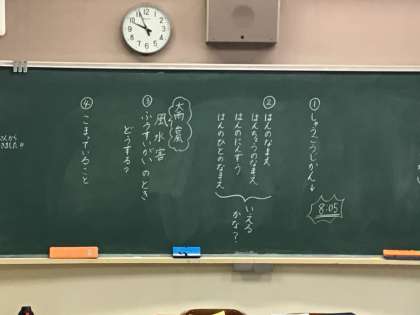 ① しゅうごうじかん↓
8:05
② はんのなまえ
はんちょうのなまえ
はんのにんずう
はんのひとのなまえ
いえる
かな?
大雨 台風
③ 風水害
ふうすいがいのとき
どうする?
④ こまっていること
さんから
きました!!